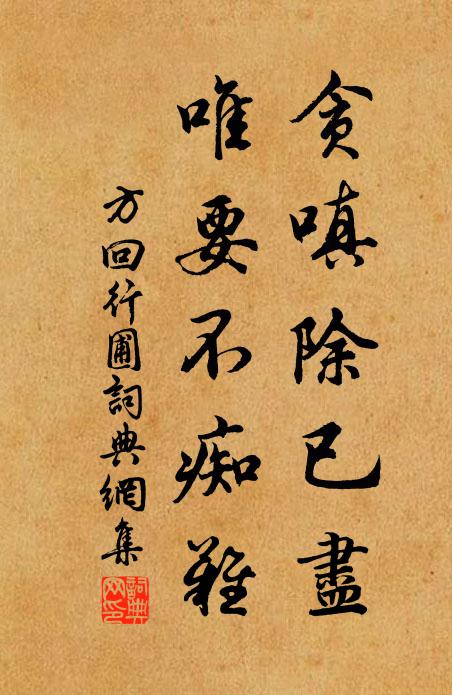 貪嗔除已盡
唯要不痴難
方回行圃詞典網集
詞典網印